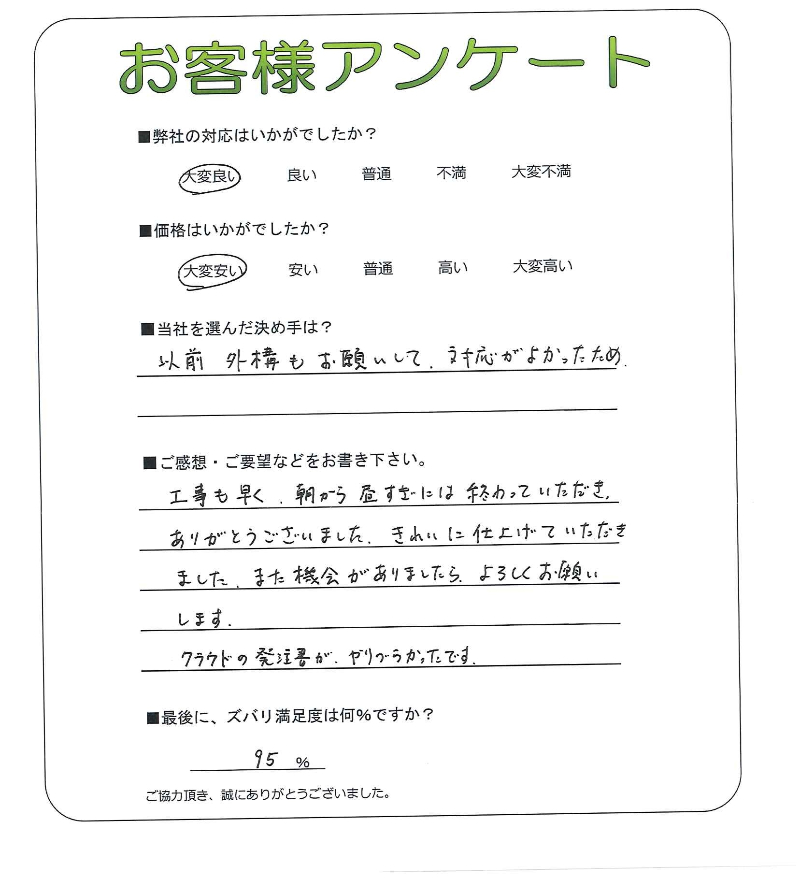 お客様アンケート
■弊社の対応はいかがでしたか？
大変良い 良い 普通 不満 大変不満
■価格はいかがでしたか？
大変安い 安い 普通 高い 大変高い
■当社を選んだ決め手は？
以前 外構も お願いして、対応がよかったため。
■ご感想・ご要望などをお書き下さい。
工事も早く、朝から昼すぎには終わっていただき、
ありがとうございました。きれいに仕上げていただき
ました。また機会がありましたら、よろしくお願い
します。
クラウドの発注書が、やりづらかったです。
■最後に、ズバリ満足度は何％ですか？
95 %
ご協力頂き、誠にありがとうございました。